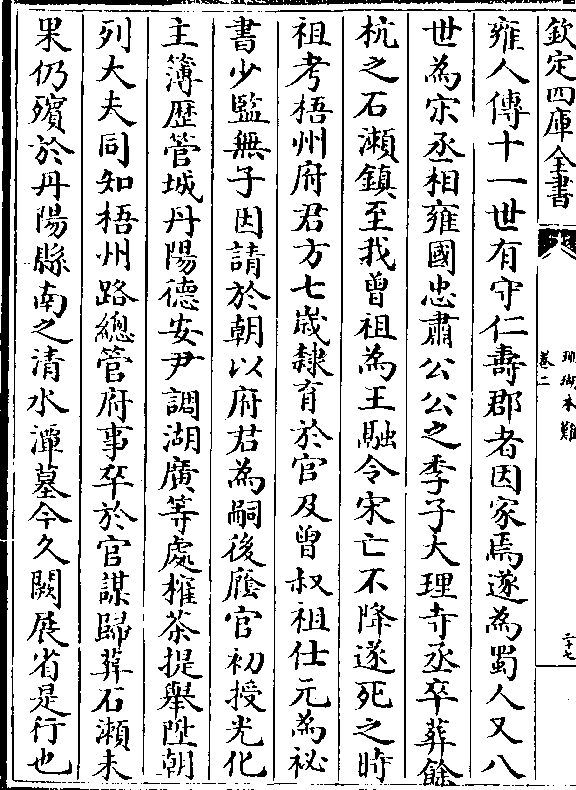 欽定四庫全書
珊瑚木難
卷二
二十七
雍人傳十一世有守仁壽郡者因家焉遂為蜀人又八
世為宋丞相雍國忠肅公公之季子大理寺丞卒葬餘
杭之石瀬鎮至我曾祖為王融令宋亡不降遂死之時
祖考梧州府君方七歲隸育於官及曾叔祖仕元為祕
書少監無子因請於朝以府君為嗣後廕官初授光化
主簿歴管城丹陽德安尹調湖廣等處榷茶提舉陞朝
列大夫同知梧州路總管府事卒於官謀歸葬石瀬未
果仍殯於丹陽縣南之清水潭墓今久闕展省是行也